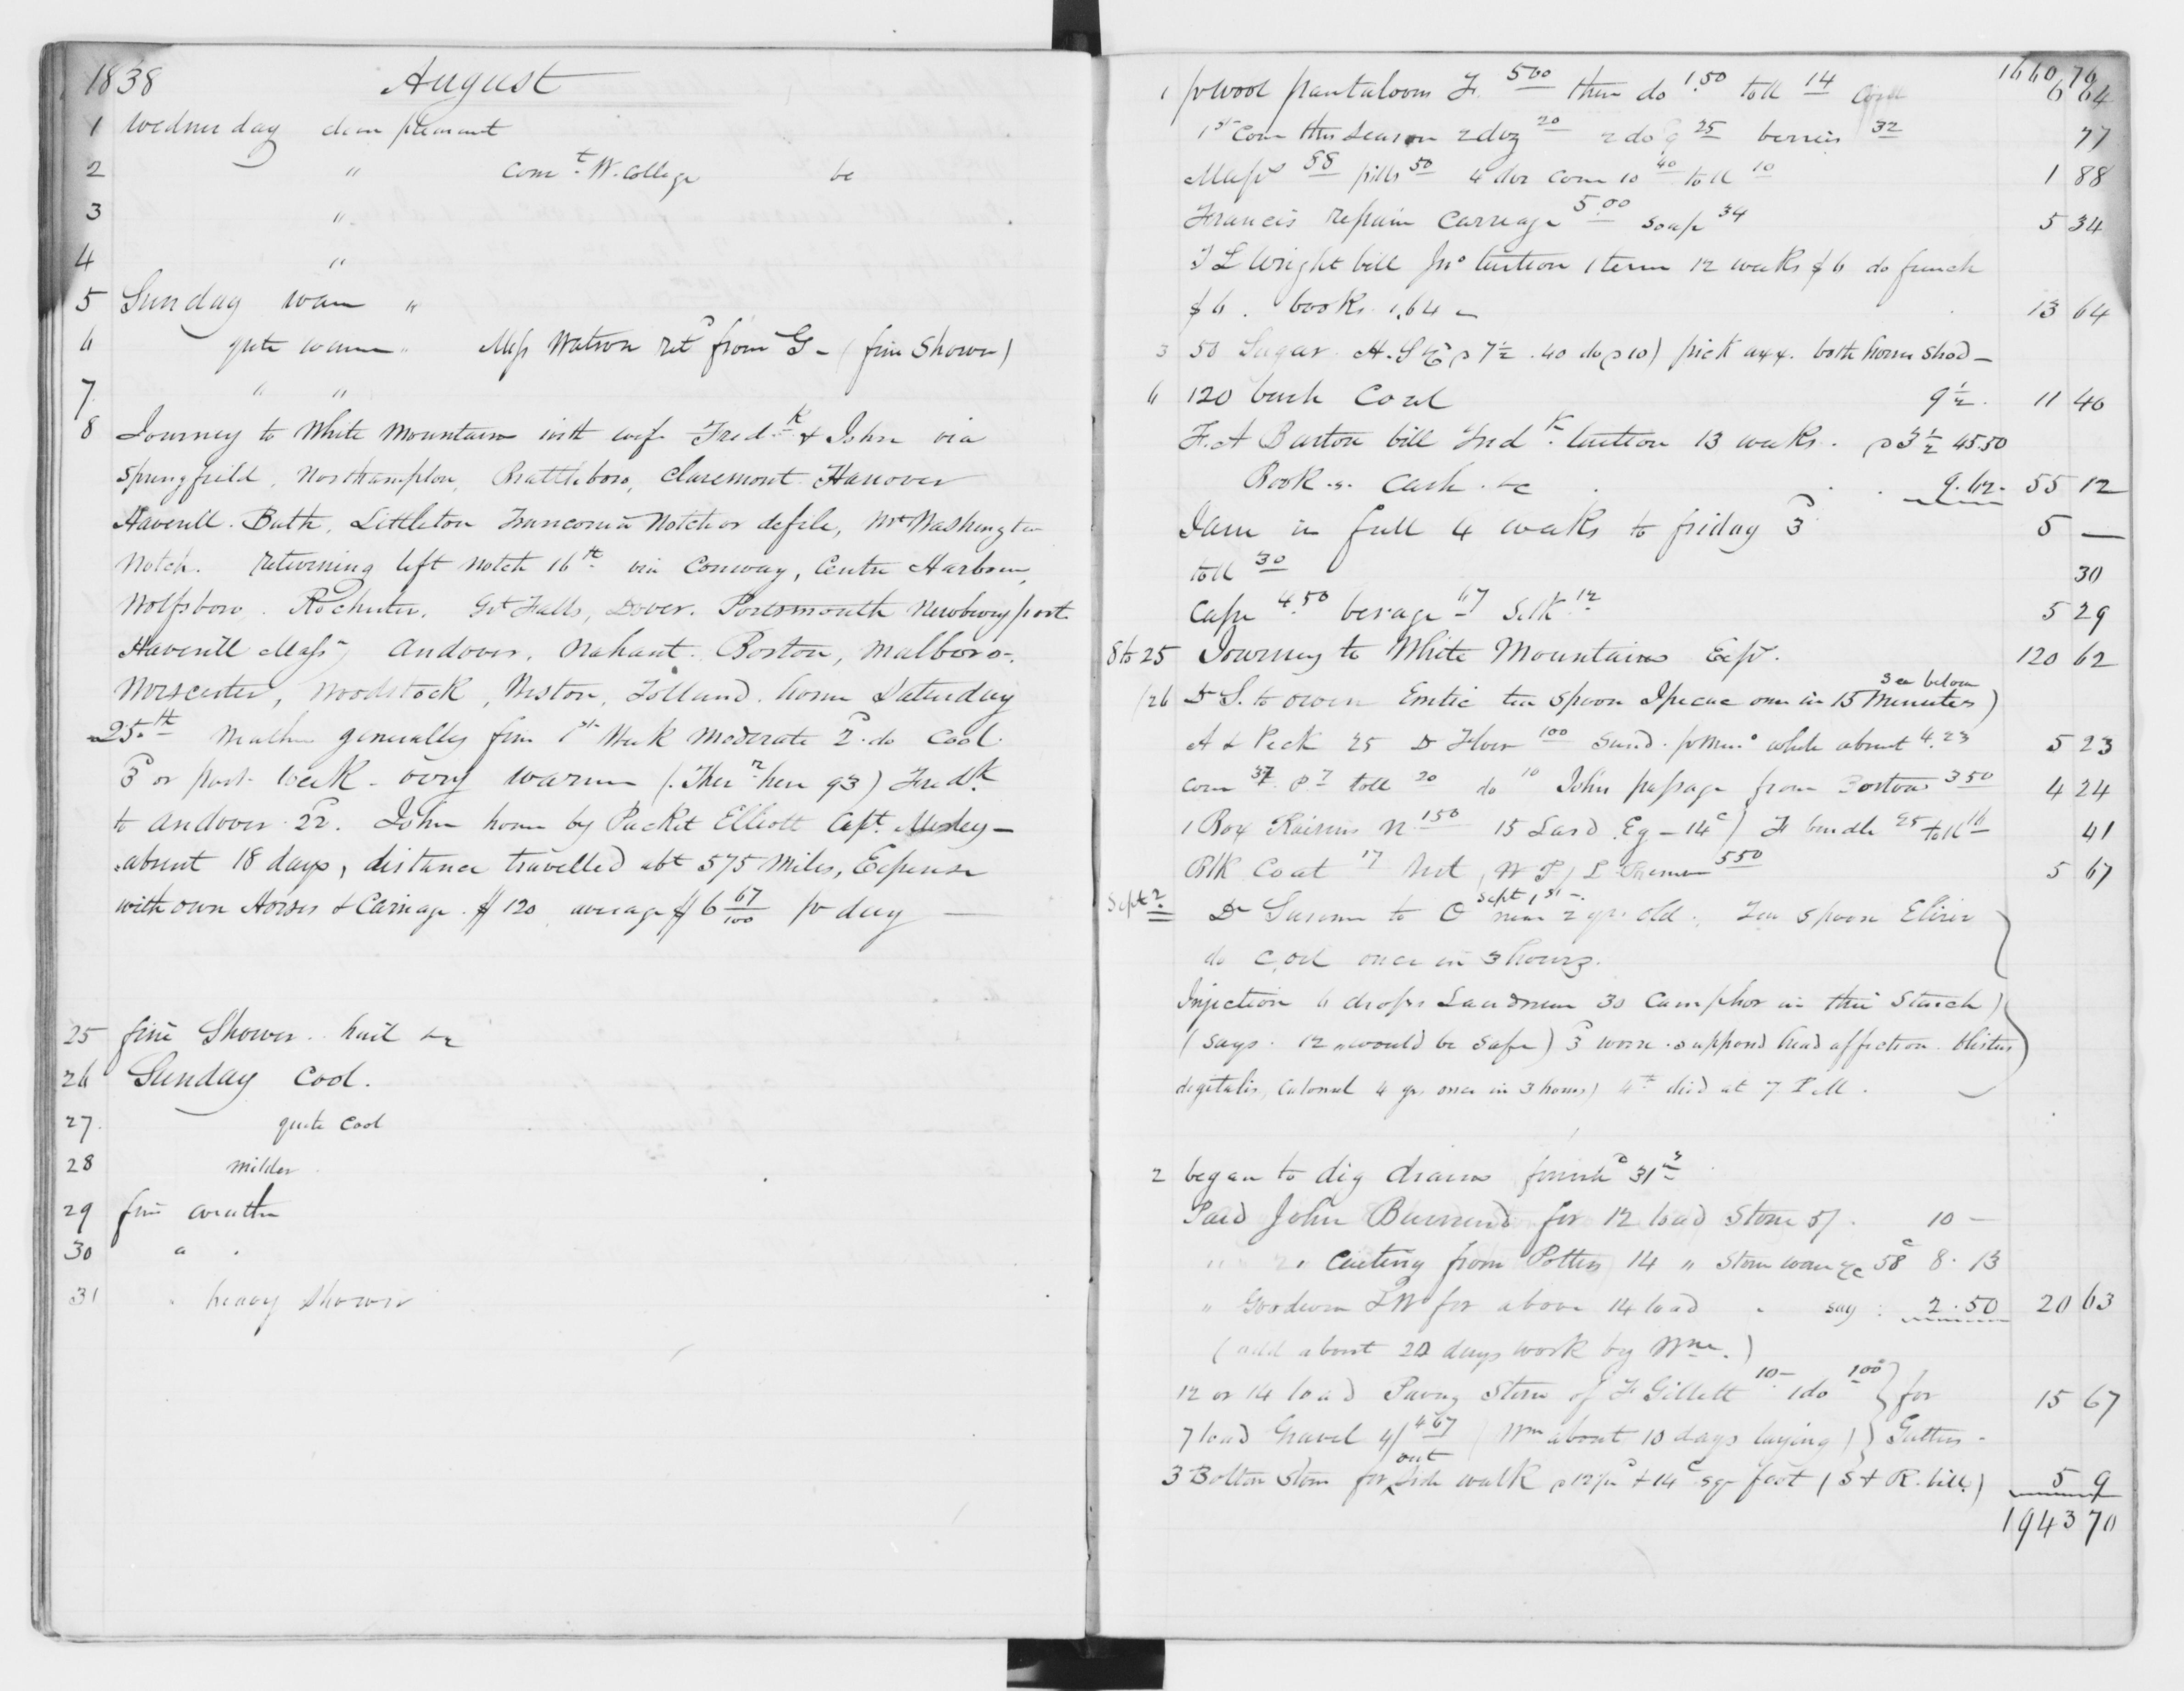 1838 August
1 Wednesday clear pleasant
2 " Comt W. College &c
3 "
4 "
5 Sunday warm "
6 quite warm " Miss Watson retd from G - (fine Shower)
7 " "
8 Journey to White Mountains with wife Fredk & John via
Springfield, Northampton, Brattleboro, Claremont Hanover
Haverill. Bath, Littleton Franconia Notch or defile, Mt Washington
Notch. returning left Notch 16th via Conway, Centre Harbour,
Wolfsboro. Rochester, Gt Falls, Dover. Portsmouth Newburyport
Haverill Mass, Andover, Nahant. Boston, Malboro-,
Worscester, Woodstock, Weston, Tolland. home Saturday
25th Weather generally fine 1st Week moderate 2d do Cool
3d or part week - very warm (Ther here 93) Fredk
to Andover 22. John home by Packet Elliott Capt.
absent 18 days, distance travelled abt 575 Miles, Expense
with own Horses & Carriage $120 average $6 67/100 pr day
25 fine Shower hail &c
26 Sunday Cool.
27 quite Cool
28 milder
29 fine weather
30 " "
31 " heavy shower
1660,76
1 pr wool pantaloons F. 500 then do 1.50 toll 14 6 64
1st Corn this Season 2 doz 20 2 do 25 berries 32 77
pills 50 4 doz Corn 10 40 toll 10 1 88
Francis repair Carriage 5.00 soap 34 5 34
T L Wright bill Jno tuition 1 term 12 weeks $6 do french
$6. books 1,64 13 64
3 50 Sugar H. S & Co 7½ . 40 do 10) pick axx. both horses shod -
6 120 bush Coal 9½. 11 40
F. A Barton bill Fredk tuition 13 weeks. 3½ 45.50
Book.s. Cash &c 9.62. 55 12
Jane in full 4 weeks to friday 3d 5 —
toll 30 30
Cape 4.50 67 Silk 12 5 29
8 to 25 Journey to White Mountains Exps. 120 62
see below
26 Dr S. to owen Emetic tea spoon Ipecac once in 15 Minutes)
A & Peck 25 Dr Flour 100 Sund. whole about 4.23 5 23
Corn 37 P 7 toll 20 do 10 John passage from Boston 350 4 24
1 Box Raisins N 150 15 Lard Eg - 14c) F bundle 25 toll 16 41
Blk Coat 17 Net, W P, L 550 5 67
Sept 1st -
Sept 2 Dr Sumner to O near 2 yrs old. Tea spoon Elixir
do C, oil once in 3 hours.
Injection 6 drops Laudnum 30 Camphor in thin Starch)
(says. 12 would be safe) 3d worse. supposed head affection. blisters
digitalis, Calomel 4 grs once in 3 hours) 4th died at 7 P.M.
2 began to dig drains finishd 31st
Paid John for 12 load Stone 5/. 10 -
" " Carting from Potters 14 " Stone 58c 8.13
" Goodwin LW for above 14 load " say : 2.50 20 63
(add about 20 days work by Wm.)
12 or 14 load Paving Stone of F Gillett 10- 1 do 100 } for 15 67
7 load Gravel 4/ 467 (Wm about 10 days laying) } Gutters -
out
3 Bolton Stone for side walk & 14c sqr foot (S & R. bill) 5 9
1943 70